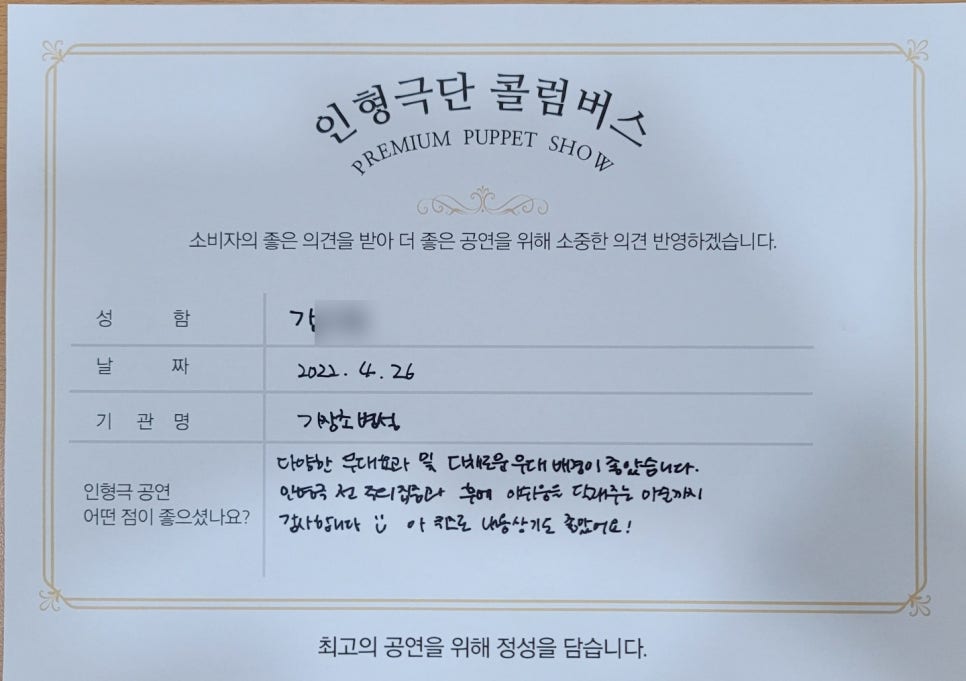 인형극단 콜럼버스
PREMIUM PUPPET SHOW
소비자의 좋은 의견을 받아 더 좋은 공연을 위해 소중한 의견 반영하겠습니다.
성 함
날 짜 2022. 4. 26
기 관 명 기장초병설
인형극 공연
어떤 점이 좋으셨나요?
다양한 무대효과 및 다채로운 무대 배경이 좋았습니다.
인형극 전 주의집중과 후에 아쉬움을 달래주는 마술까지
감사합니다 아 퀴즈로 내용상기도 좋았어요!
최고의 공연을 위해 정성을 담습니다.